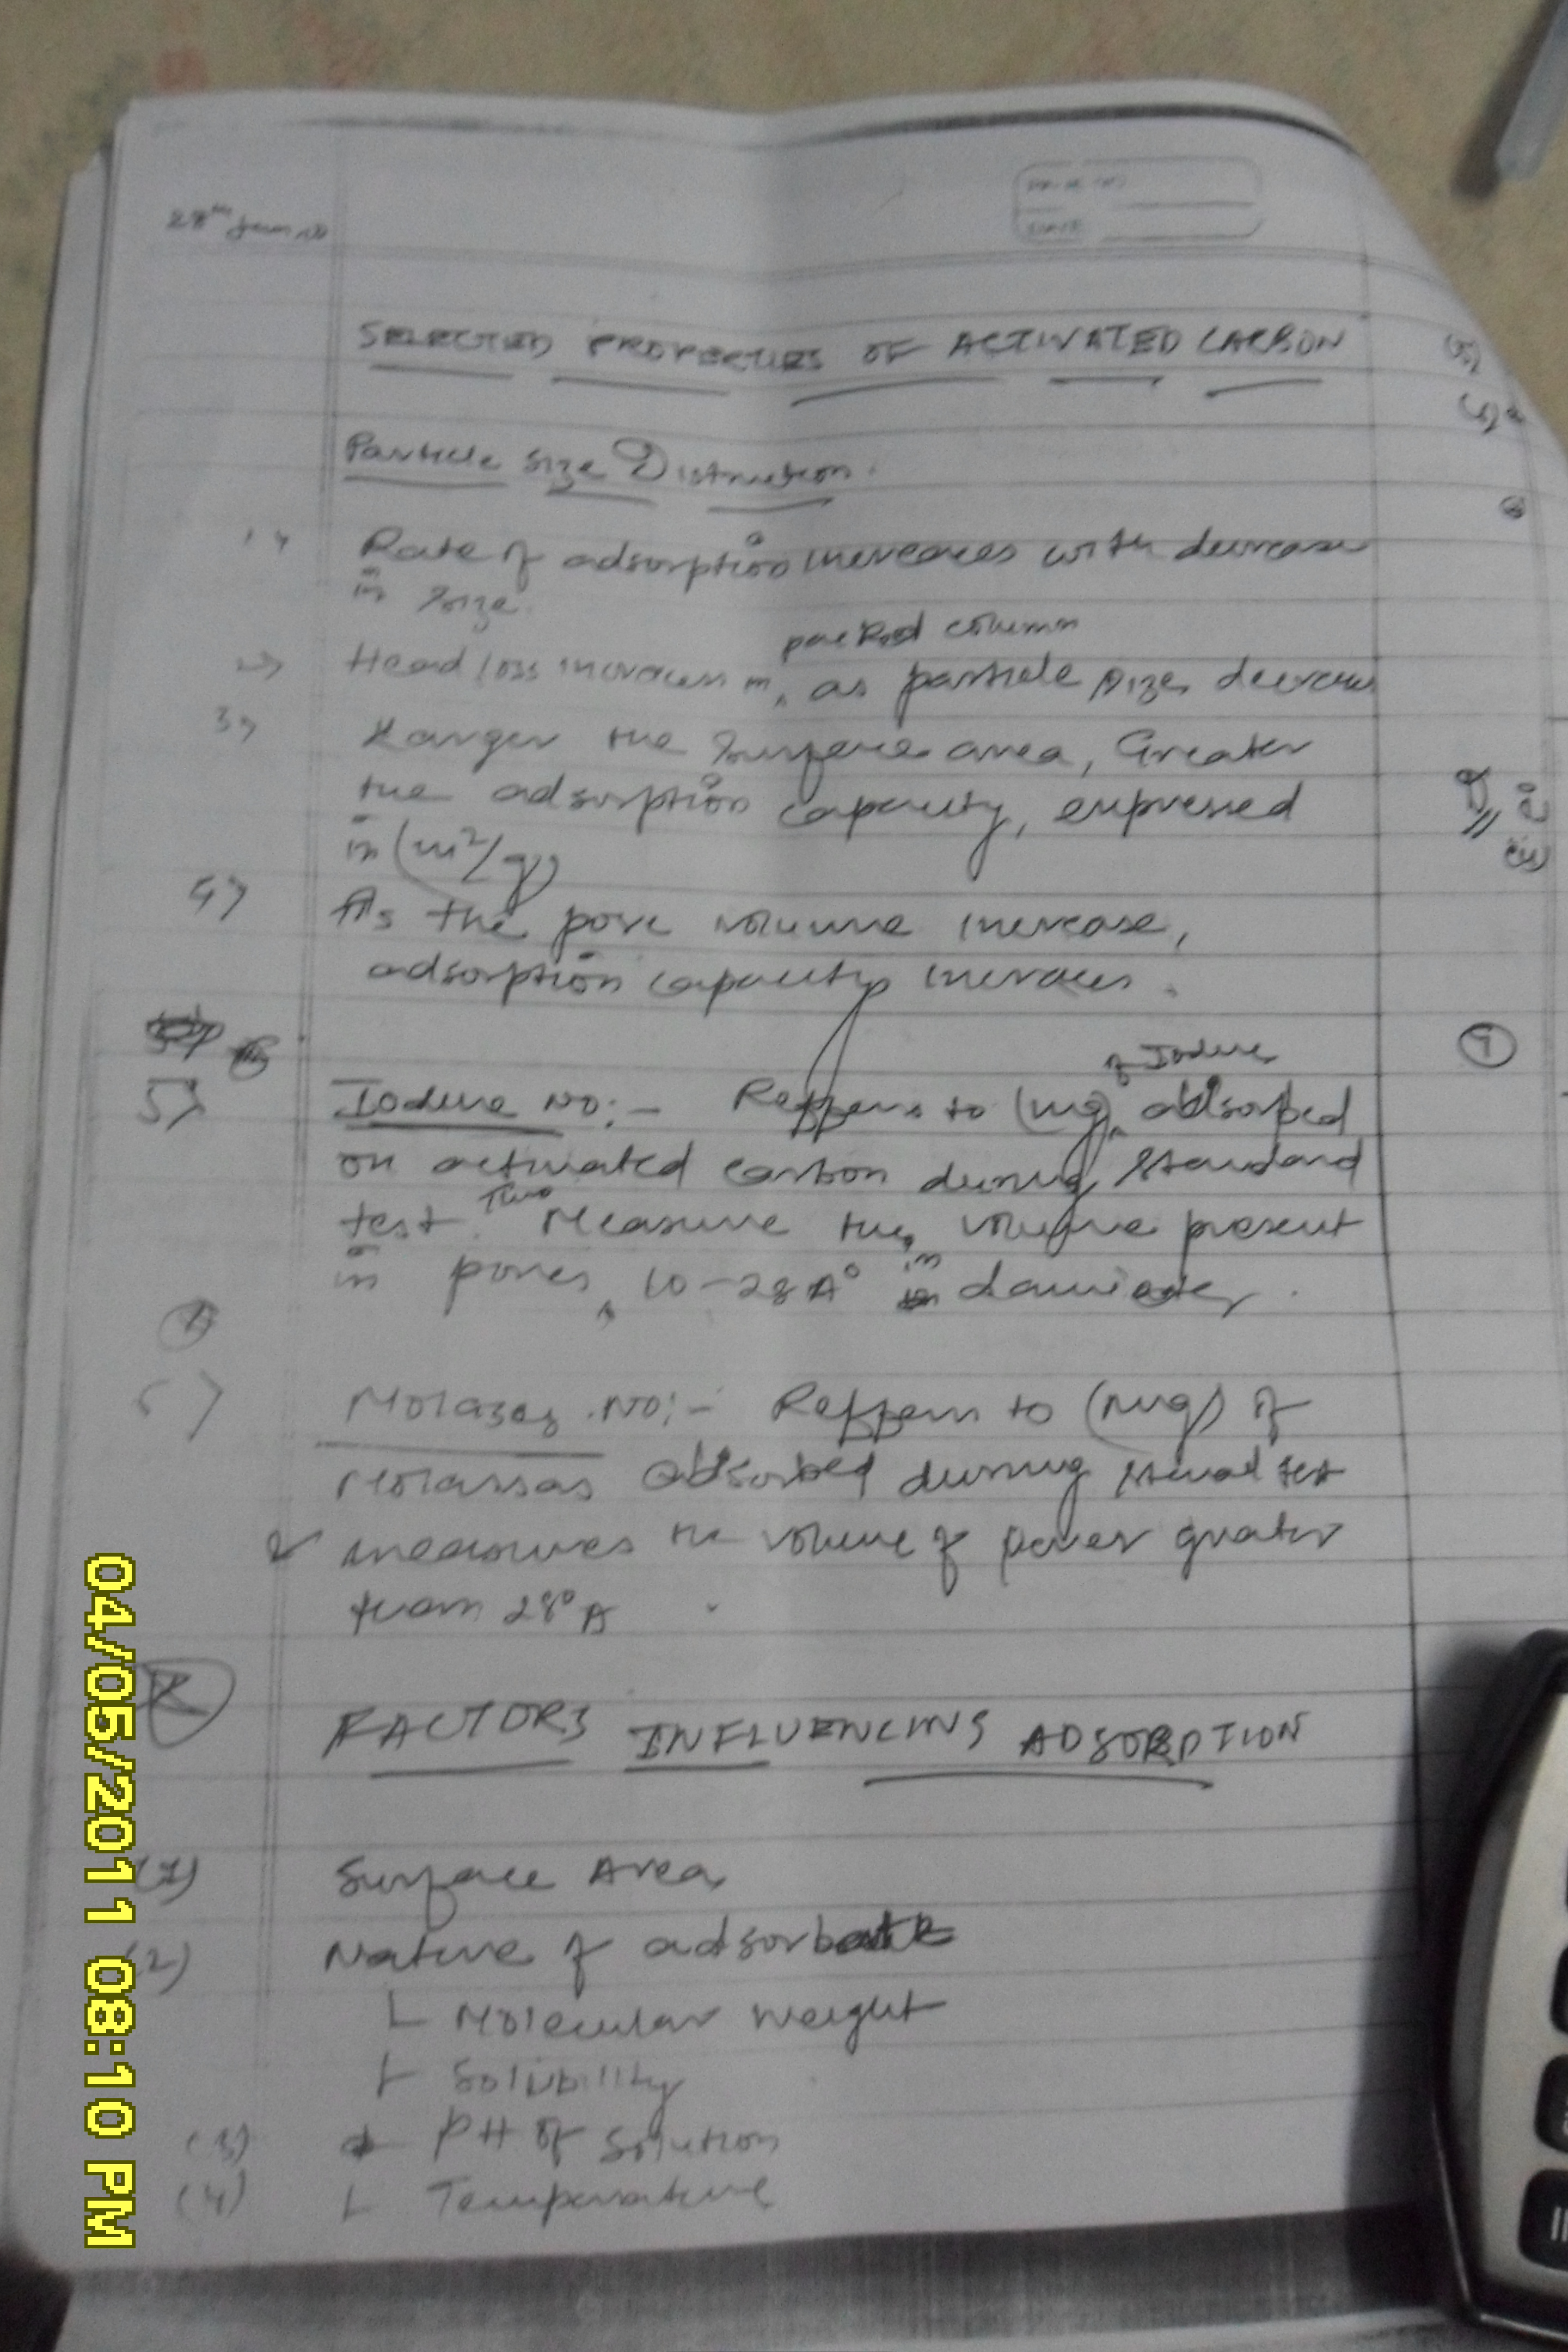 28th Jan
PAGE NO
DATE
SELECTED PROPERTIES OF ACTIVATED CARBON
Particle Size Distribution.
1) Rate of adsorption increases with decrease
in size.
packed column
2) Head loss increases in as particle size decreases
3) Larger the Surface area, Greater
the adsorption capacity, expressed
in (m²/g)
4) As the pore volume increase,
adsorption capacity increases.
of Iodine
5) Iodine No:- Reffers to (mg) adsorbed
on activated carbon during standard
test. This Measure the volume present
in pores 10-28A° in diameter.
6) Molases No:- Reffers to (mg) of
Molassas adsorbed during test
& measures the volume of pores greater
than 28°A
FACTORS INFLUENCING ADSORPTION
(1) Surface Area
(2) Nature of adsorbate
Molecular Weight
Solubility
(3) PH of Solution
(4) Temperature
04/05/2011 08:10 PM